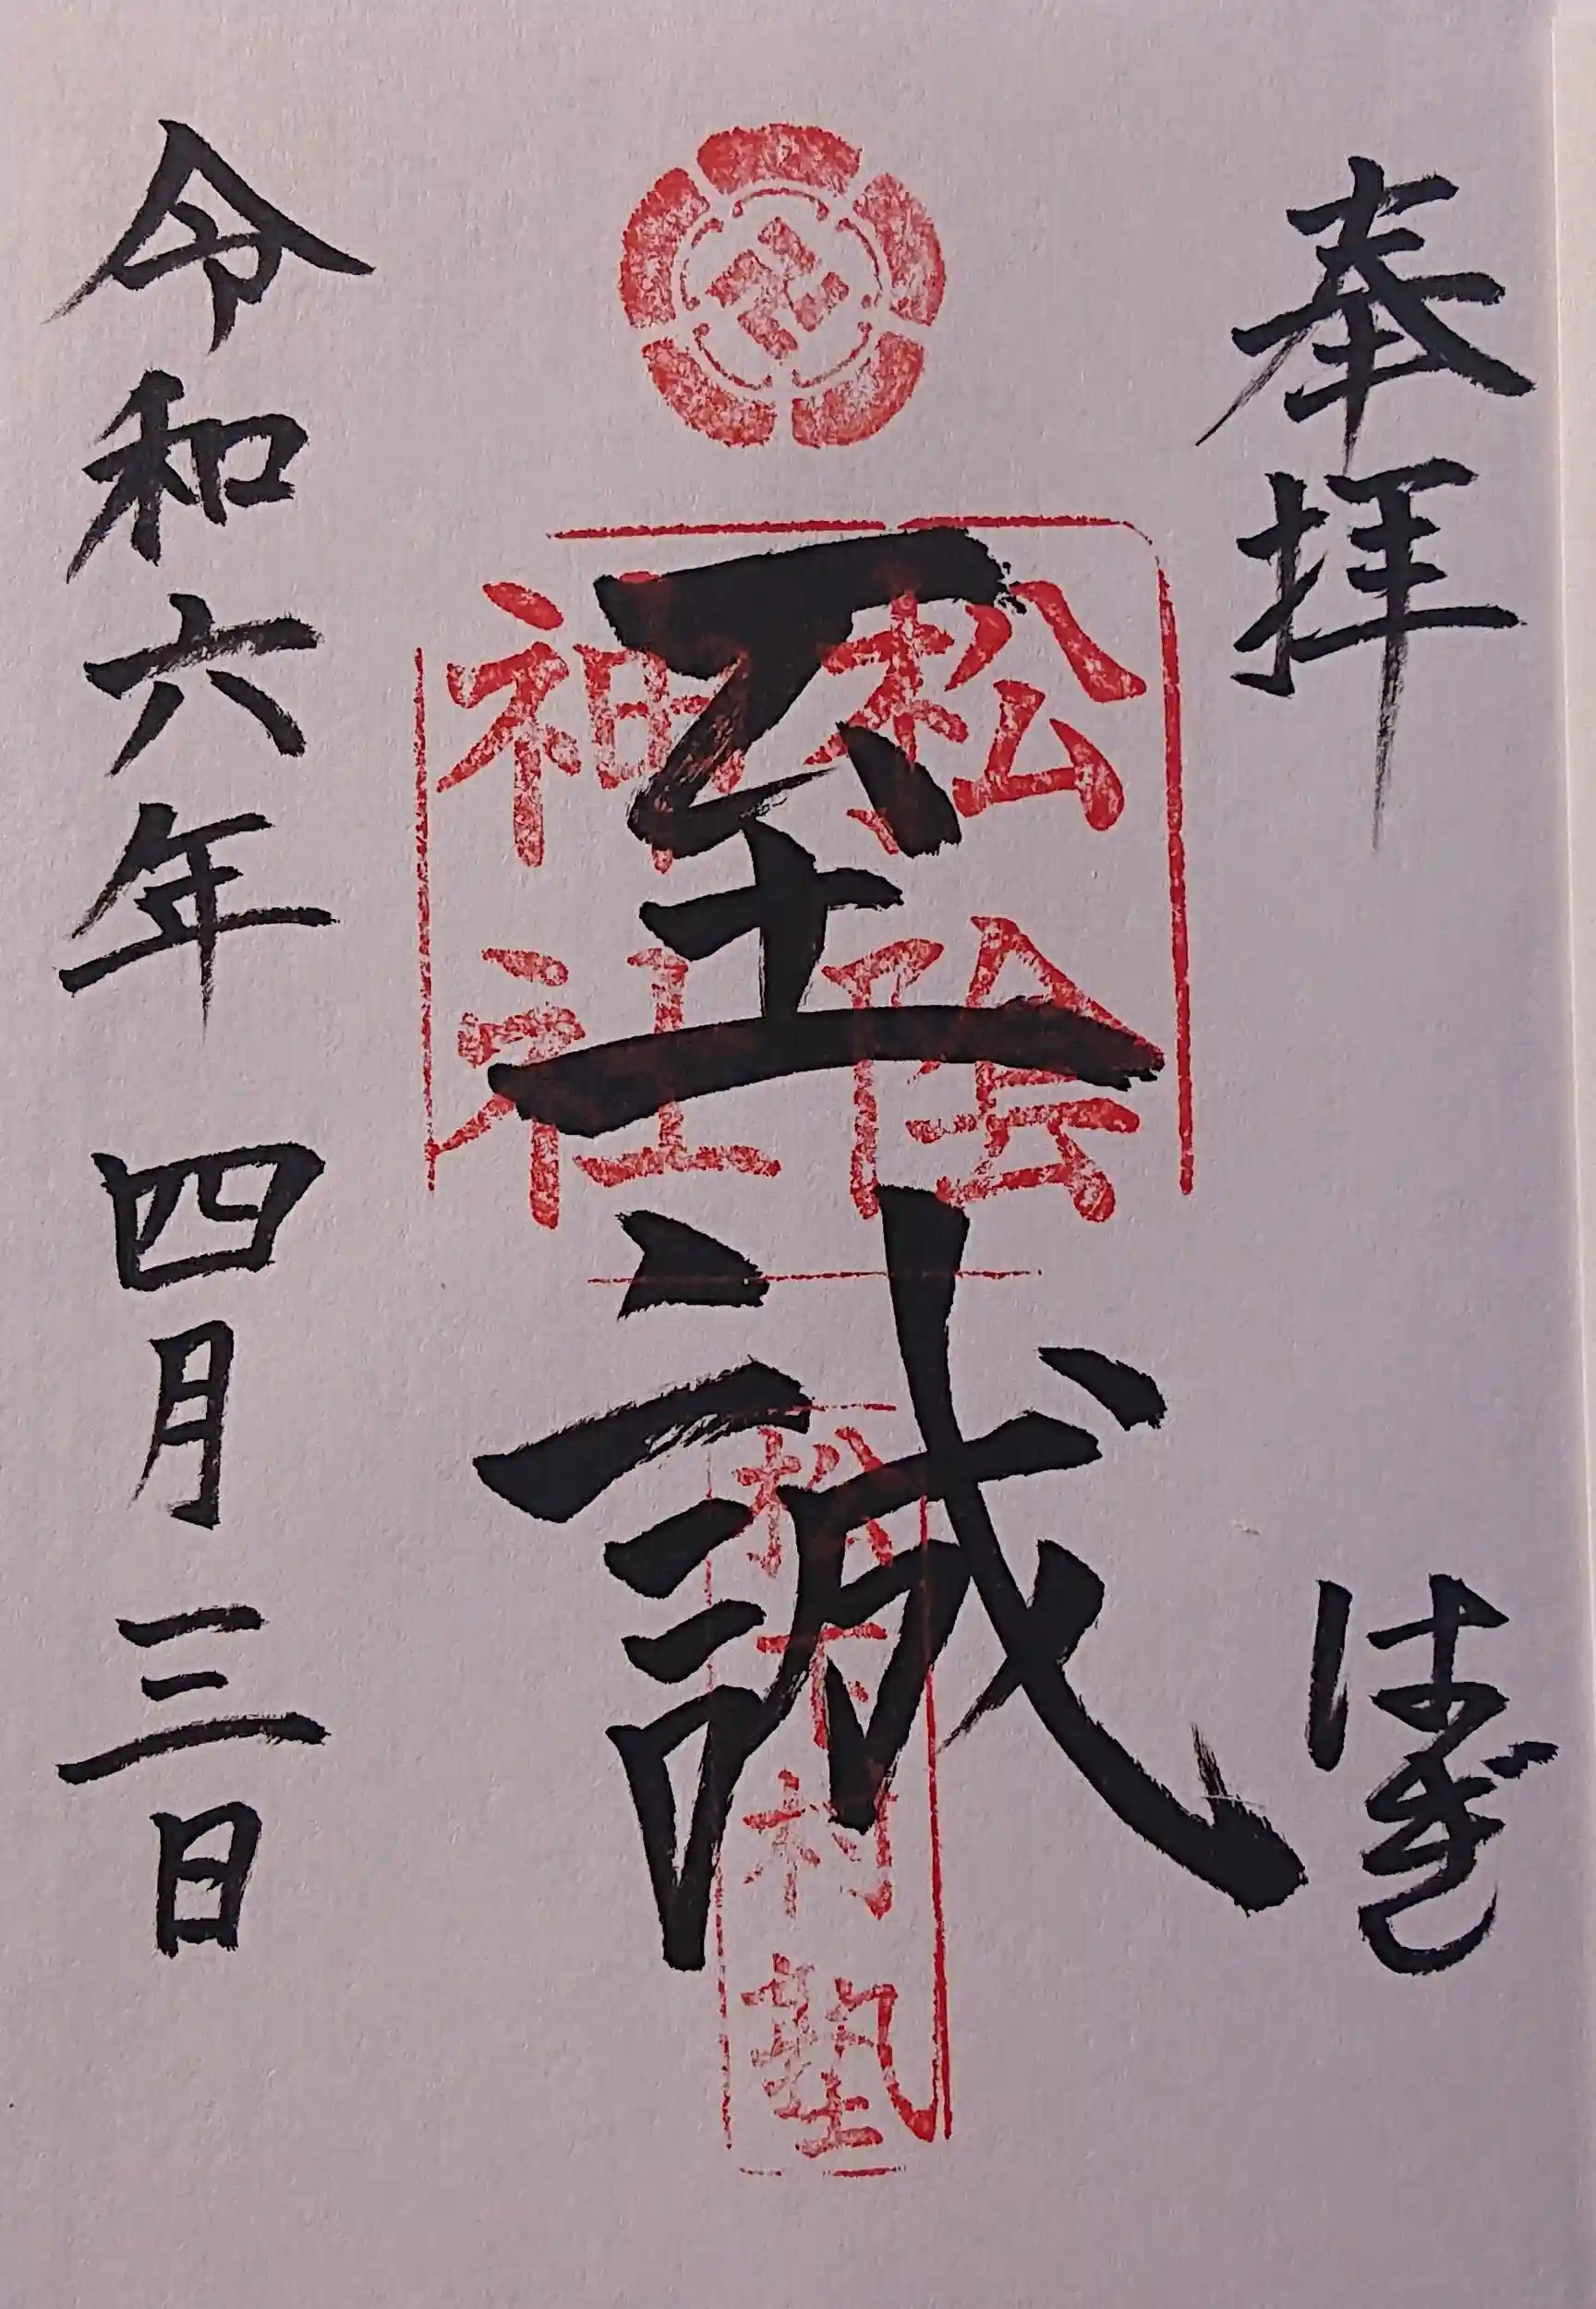 奉拝
はぎ
至誠
松陰
神社
松下村塾
令和六年四月三日